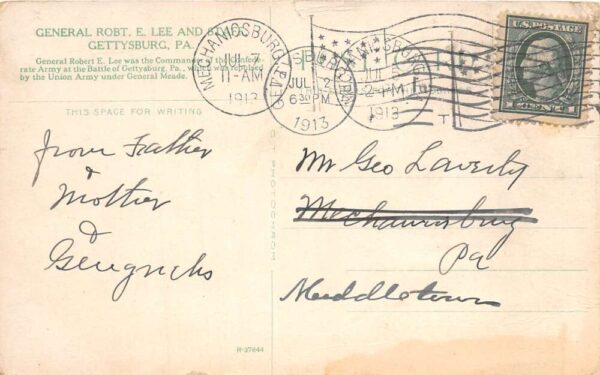 GENERAL ROBT. E. LEE AND
GETTYSBURG, PA.
General Robert E. Lee was the Commander of the Confede-
rate Army at the Battle of Gettysburg, Pa., which was repulsed
by the Union Army under General Meade.
MECHANICSBURG PA.
JUL 7
11-AM
1913
JUL 2
6 30 PM
1913
2-PM
1913
U.S. POSTAGE
THIS SPACE FOR WRITING
from Father
&
Mother
&
Mr Geo Laverty
Mechanicsburg
Pa
Middletown
R-37844